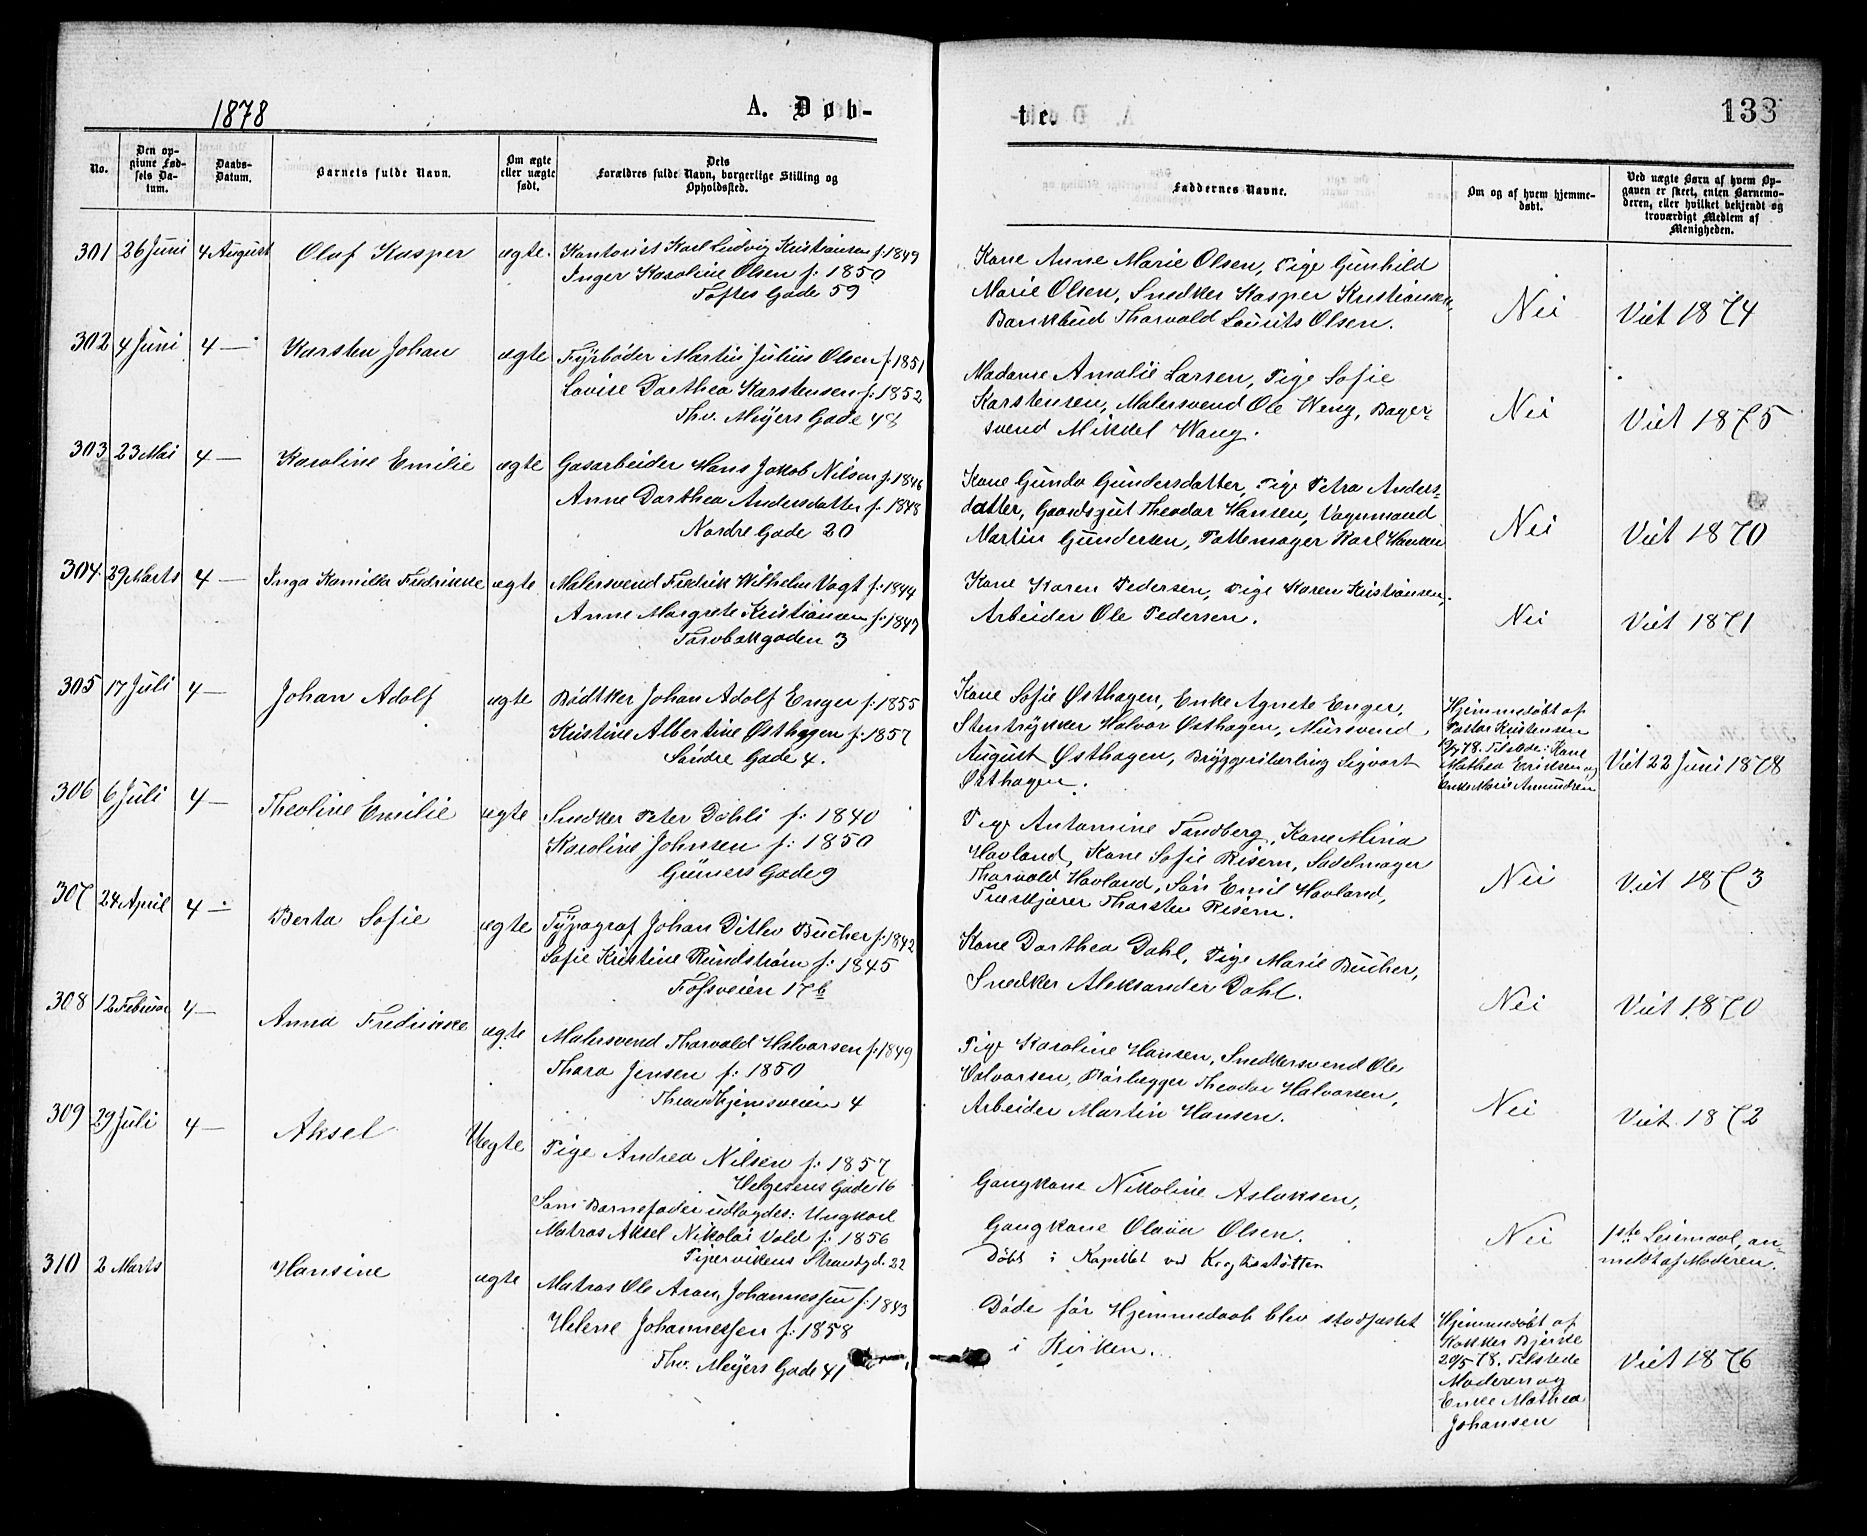 1878
A. Døb-
te.
133
No.
Den op-
givne Fød-
sels Da-
tum.
Daabs-
Datum.
Barnets fulde Navn.
Om ægte
eller uægte
født.
Dets
Forældres fulde Navn, borgerlige Stilling og
Opholdssted.
Faddernes Navne.
Om og af hvem hjemme-
døbt.
Ved uægte Børn af hvem Op-
gaven er skeet, enten Barnemo-
deren, eller hvilket bekjendt og
troværdigt Medlem af
Menigheden.
301 26 Juni 4 August Oluf Kasper ægte. Kontorist Karl Ludvig Kristiansen f. 1849
Inger Karoline Olsen f: 1850
Toftes Gade 59
Kone Anne Marie Olsen, Pige Gunhild
Marie Olsen, Snedker Kasper Kristiansen,
Bankbud Thorvald Laurits Olsen.
Nei
Viet 1874
302 4 Juni 4 — Karsten Johan ægte Fyrbøder Martin Julius Olsen f. 1851
Lovise Dorthea Karstensen f: 1852
Thv. Meyers Gade 48
Madame Amalie Larsen, Pige Sofie
Karstensen, Malersvend Ole Weng, Bager-
svend Mikkel Wang.
Nei
Viet 1875
303 23 Mai 4 — Karoline Emilie ægte Gasarbeider Hans Jakob Nilsen f. 1846
Anne Dorthea Andersdatter f. 1848
Nordre Gade 20
Kone Gunda Gundersdatter, Pige Petra Anders-
datter, Gaardsgut Theodor Hansen, Vognmand
Martin Gundersen, Pottemager Karl Hansen
Nei
Viet 1870
304. 29 Marts 4 — Inga Kamilla Fredrikke ægte Malersvend Fredrik Wilhelm Vogt f: 1844
Anne Margrete Kristiansen f: 1847
Torvbakgaden 3
Kone Karen Pedersen, Pige Karen Kristiansen,
Arbeider Ole Pedersen.
Nei
Viet 1871
305 17 Juli 4 — Johan Adolf ægte Bødtker Johan Adolf Enger f. 1855
Kristine Albertine Østhagen f: 1857
Søndre Gade 4.
Kone Sofie Østhagen, Enke Agnete Enger,
Stentrykker Halvor Østhagen, Mursvend
August Østhagen, Bryggerilærling Sigvart
Østhagen.
Hjemmedøbt af
Pastor Kristensen
78. Tilstede: Kone
Mathea Eriksen og
Enke Marie Amundsen
Viet 22 Juni 1878
306 6 Juli 4 — Theoline Emilie ægte Snedker Peter Døhli f: 1840
Karoline Johnsen f: 1850
Gruners Gade 9
Pige Antonine Tandberg, Kone Mina
Havland, Kone Sofie Risern, Sadelmager
Thorvald Havland, Søn Emil Havland,
Træskjærer Thorsten Risern.
Nei
Viet 1873
307 24 April 4 — Berta Sofie ægte Typograf Johan Ditlev Bucher f. 1842
Sofie Kristine Rundstrøm f: 1845
Fossveien 17 b
Kone Dorthea Dahl, Pige Marie Bucher,
Snedker Aleksander Dahl.
Nei
Viet 1870
308 12 Februar 4 — Anna Fredrikke ægte Malersvend Thorvald Halvorsen f: 1849
Thora Jensen f: 1850
Throndhjemsveien 4
Pige Karoline Hansen, Snedkersvend Ole
Halvorsen, Rørlægger Theodor Halvorsen,
Arbeider Martin Hansen.
Nei
Viet 1872
309 29 Juli 4 — Aksel Uægte Pige Andrea Nilsen f: 1857
Helgesens Gade 16
Som Barnefader udlagdes: Ungkarl
Matros Aksel Nikolai Vold f: 1856
Pipervikens Strandgd. 22
Gangkone Nikoline Aslaksen,
Gangkone Olava Olsen.
Døbt i Kapellet ved Krohgstøtten
Nei
1ste Leiermaal, an-
meldt af Moderen.
310 2 Marts Hansine ægte Matros Ole Aron Johannessen f: 1843
Helene Johannessen f: 1858
Thv. Meyers Gade 41
Døde før Hjemmedaab blev stadfæstet
i Kirken.
Hjemmedøbt af
Klokker Bjerke
20/5 78. Tilstede
Moderen og
Enke Mathea
Johansen
Viet 1876